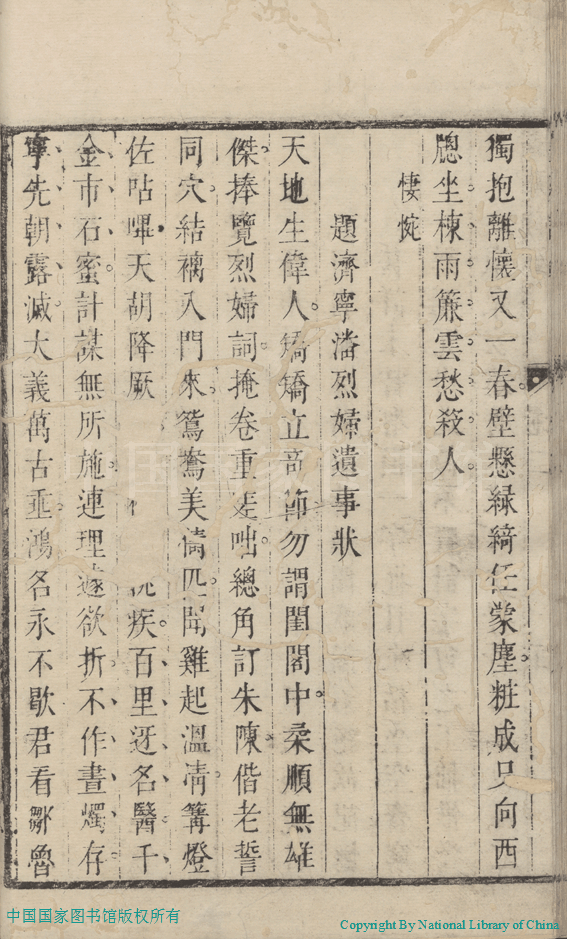 獨抱離懷又一春壁懸綠綺任蒙塵粧成只向西
牕坐棟雨簾雲愁殺人
悽惋
題濟寧潘烈婦遺事狀
天地生偉人矯矯立奇節勿謂閨閣中柔順無雄
傑捧覽烈婦詞掩卷重嗟咄總角訂朱陳偕老誓
同穴結褵入門來鴛鴦美儔匹聞雞起溫凊篝燈
佐呫嗶天胡降厥疾百里迓名醫千
金市石蜜計謀無所施連理遽欲折不作晝燭存
寧先朝露滅大義萬古垂鴻名永不歇君看鄒魯
中国国家图书馆版权所有
Copyright By National Library of China